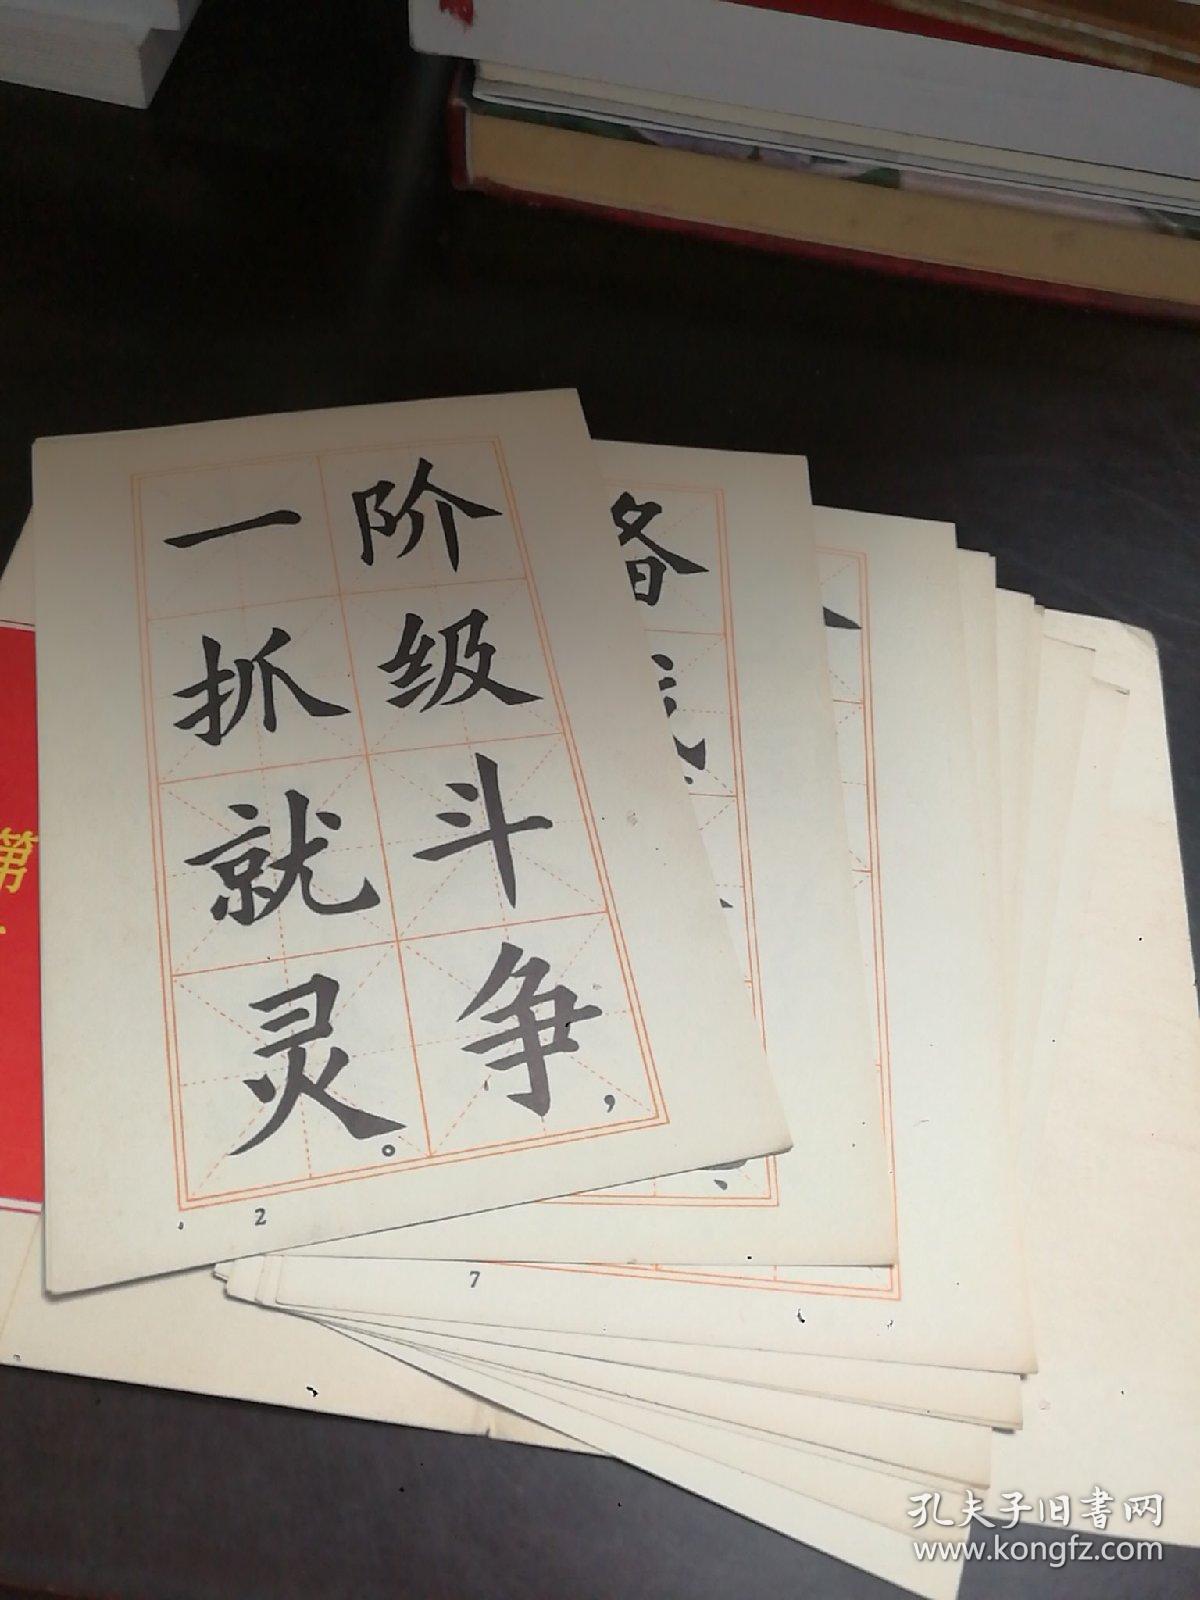 阶级斗争，
一抓就灵。
2
7
第
孔夫子旧书网
www.kongfz.com